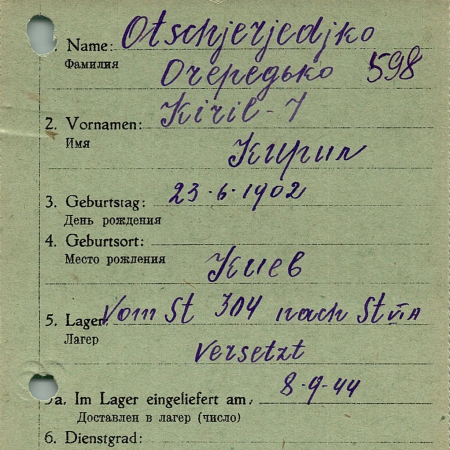 1. Name: Otschjerjedjko
Фамилия Очередько 598
2. Vornamen: Kiril-I
Имя Кирил
3. Geburtstag: 23·6·1902
День рождения
4. Geburtsort:
Место рождения Киев
5. Lager: Vom St 304 nach St VI A
Лагер versetzt
5a. Im Lager eingeliefert am: 8-9-44
Доставлен в лагер (число)
6. Dienstgrad: